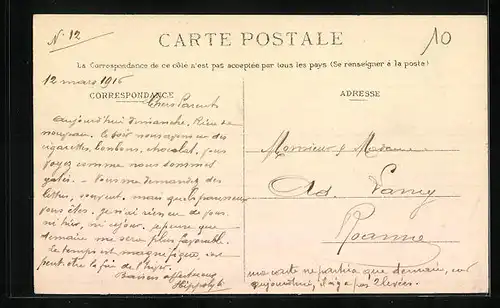 N° 12
10
CARTE POSTALE
La Correspondance de ce côté n'est pas acceptée par tous les pays (Se renseigner à la poste)
12 mars 1916
CORRESPONDANCE
ADRESSE
Chers Parents
Aujourd'hui Dimanche. Rien de
nouveau. Ce soir nous avons eu des
cigarettes, bonbons, chocolat, vous
voyez comme nous sommes
gâtés. - Vous me demandez des
lettres, souvent, mais que
vous êtes. Je n'ai rien eu de vous
ni hier, ni ce jour, je pense que
demain me sera plus favorable.
Le temps est magnifique, ce
peut être la fin de l'hiver.
Baisers affectueux
Hippolyte
Monsieur & Madame
Ad
Roanne
ma carte ne partira que demain, car
aujourd'hui, il n'y a pas 2 levées.